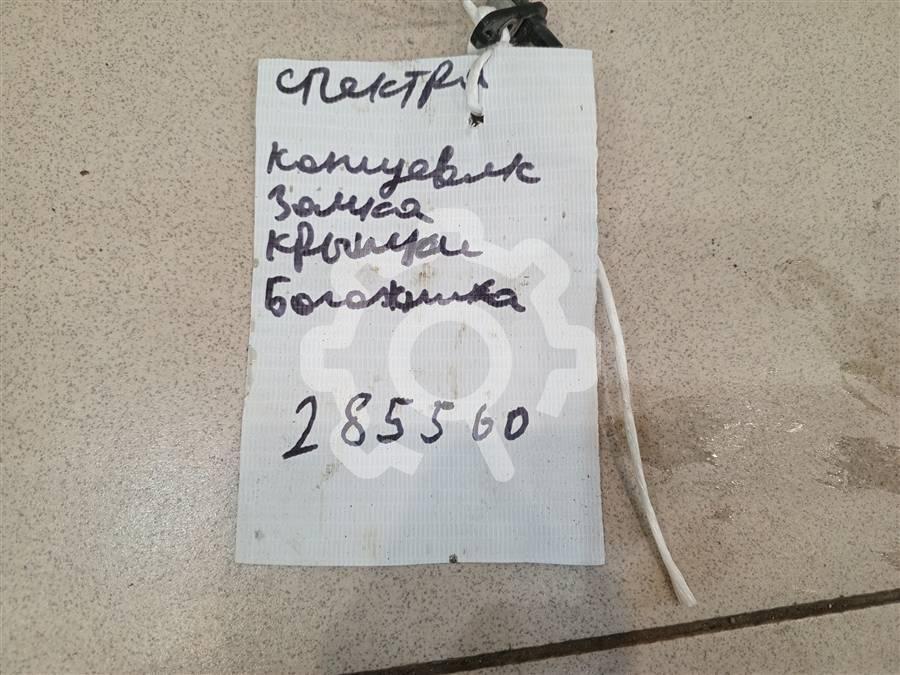 Спектра
концевик
Замка
крышки
Богожника
285560